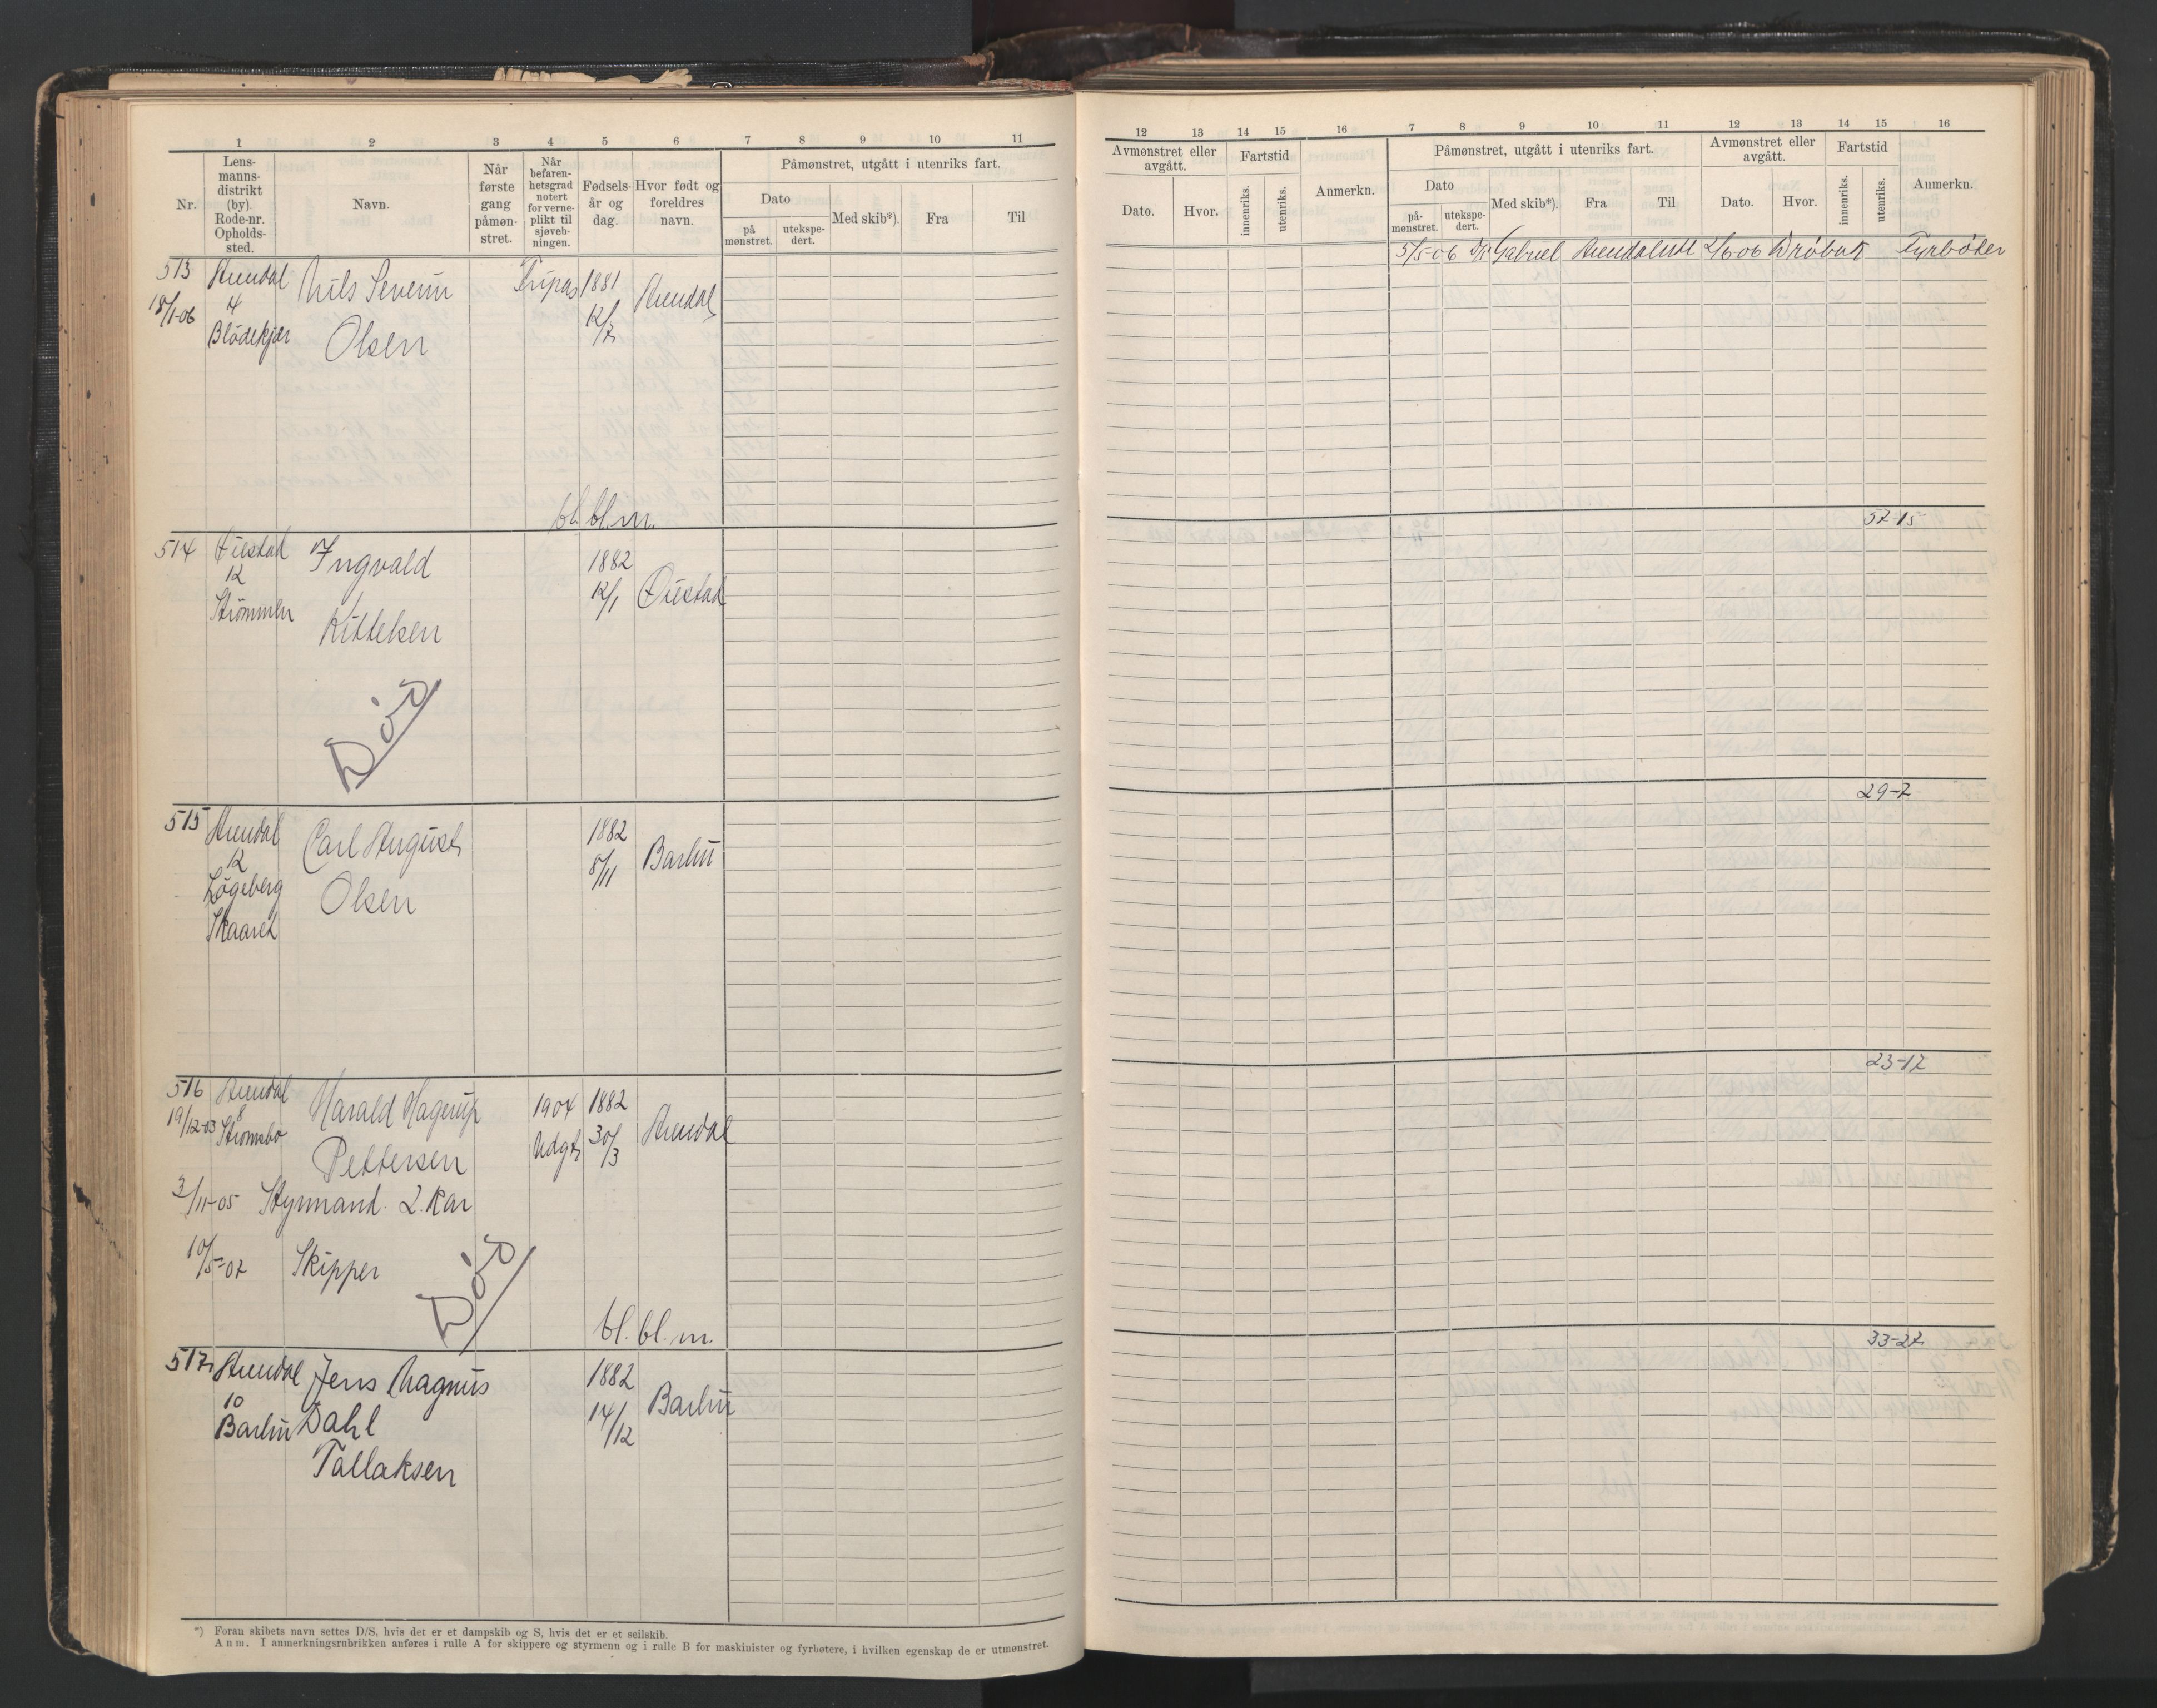 1 2 3 4 5 6 7 8 9 10 11
Nr.
Lens-
manns-
distrikt
(by)
Rode-nr.
Opholds-
sted.
Navn.
Når
første
gang
påmøn-
stret.
Når
befaren-
hetsgrad
notert
for verne-
plikt til
sjøveb-
ningen.
Fødsels-
år og
dag.
Hvor født og
foreldres
navn.
Påmønstret, utgått i utenriks fart.
Dato
på
mønstret.
utekspe-
dert.
Med skib*).
Fra
Til
513
18/1-06
Arendal
4
Blødekjær
Nils Severin
Olsen
Fripas
1881
12/7
Arendal
bl. bl. m.
514
Øiestad
12
Strømmen
Ingvald
Kittelsen
1882
12/1
Øiestad
Død
515
Arendal
12
Løgeberg
Skaaret
Carl August
Olsen
1882
8/11
Barbu
516
19/12-03
Arendal
8
Strømsbo
Harald Hagerup
Pettersen
1904
Udgt
1882
30/3
Arendal
3/11-05 Styrmand. 2. Kar
10/5-07 Skipper
Død
bl. bl. m.
517
Arendal
10
Barbu
Jens Magnus
Dahl
Tallaksen
1882
14/12
Barbu
*) Foran skibets navn settes D/S, hvis det er et dampskib og S, hvis det er et seilskib.
Anm. I anmerkningsrubrikken anføres i rulle A for skippere og styrmenn og i rulle B for maskinister og fyrbøtere, i hvilken egenskap de er utmønstret.
12 13 14 15 16 7 8 9 10 11 12 13 14 15 16
Avmønstret eller
avgått.
Dato.
Hvor.
Fartstid
innenriks.
utenriks.
Anmerkn.
Påmønstret, utgått i utenriks fart.
Dato
på-
mønstret.
utekspe-
dert.
Med skib*).
Fra
Til
Avmønstret eller
avgått.
Dato.
Hvor.
Fartstid
innenriks.
utenriks.
Anmerkn.
5/5-06 D/S Gabriel Arendal Utl 2/6-06 Drøbak Fyrbøter
57-15
29-7
23-17
33-27